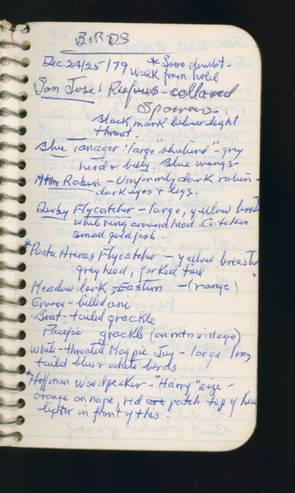 BIRDS
Dec 24/25/79 * Some doubt -
Walk from hotel
San José: Rufous-collared
Sparrow
black mark below light
throat.
Blue Tanager: large "bluebird" - grey
head & belly. Blue wings -
Mtn Robin - Uniformly dark robin -
dark eyes & legs.
Derby Flycatcher - large, yellow breast
white ring around head. Catches
small goldfish.
* Punta Arenas Flycatcher - yellow breasted
grey head, forked tail
Meadow lark, Eastern - (range)
Groove-billed ani
Boat-tailed grackle
Pacific grackle (on outrig
White-throated Magpie Jay - large long
tailed blue & white birds
* Hoffman Woodpecker - "Hairy" size -
orange on nape, red patch top of head
lighter in front of this.